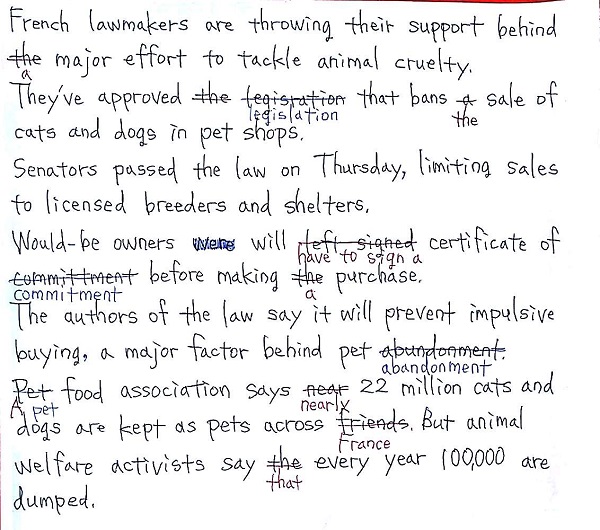 French lawmakers are throwing their support behind
the major effort to tackle animal cruelty.
a
They've approved the legistration that bans a sale of
legislation the
cats and dogs in pet shops.
Senators passed the law on Thursday, limiting sales
to licensed breeders and shelters.
Would-be owners were will left signed certificate of
have to sign a
committment before making the purchase.
commitment a
The authors of the law say it will prevent impulsive
buying, a major factor behind pet abundonment.
abandonment
Pet food association says near 22 million cats and
A pet nearly
dogs are kept as pets across friends. But animal
France
welfare activists say the every year 100,000 are
that
dumped.